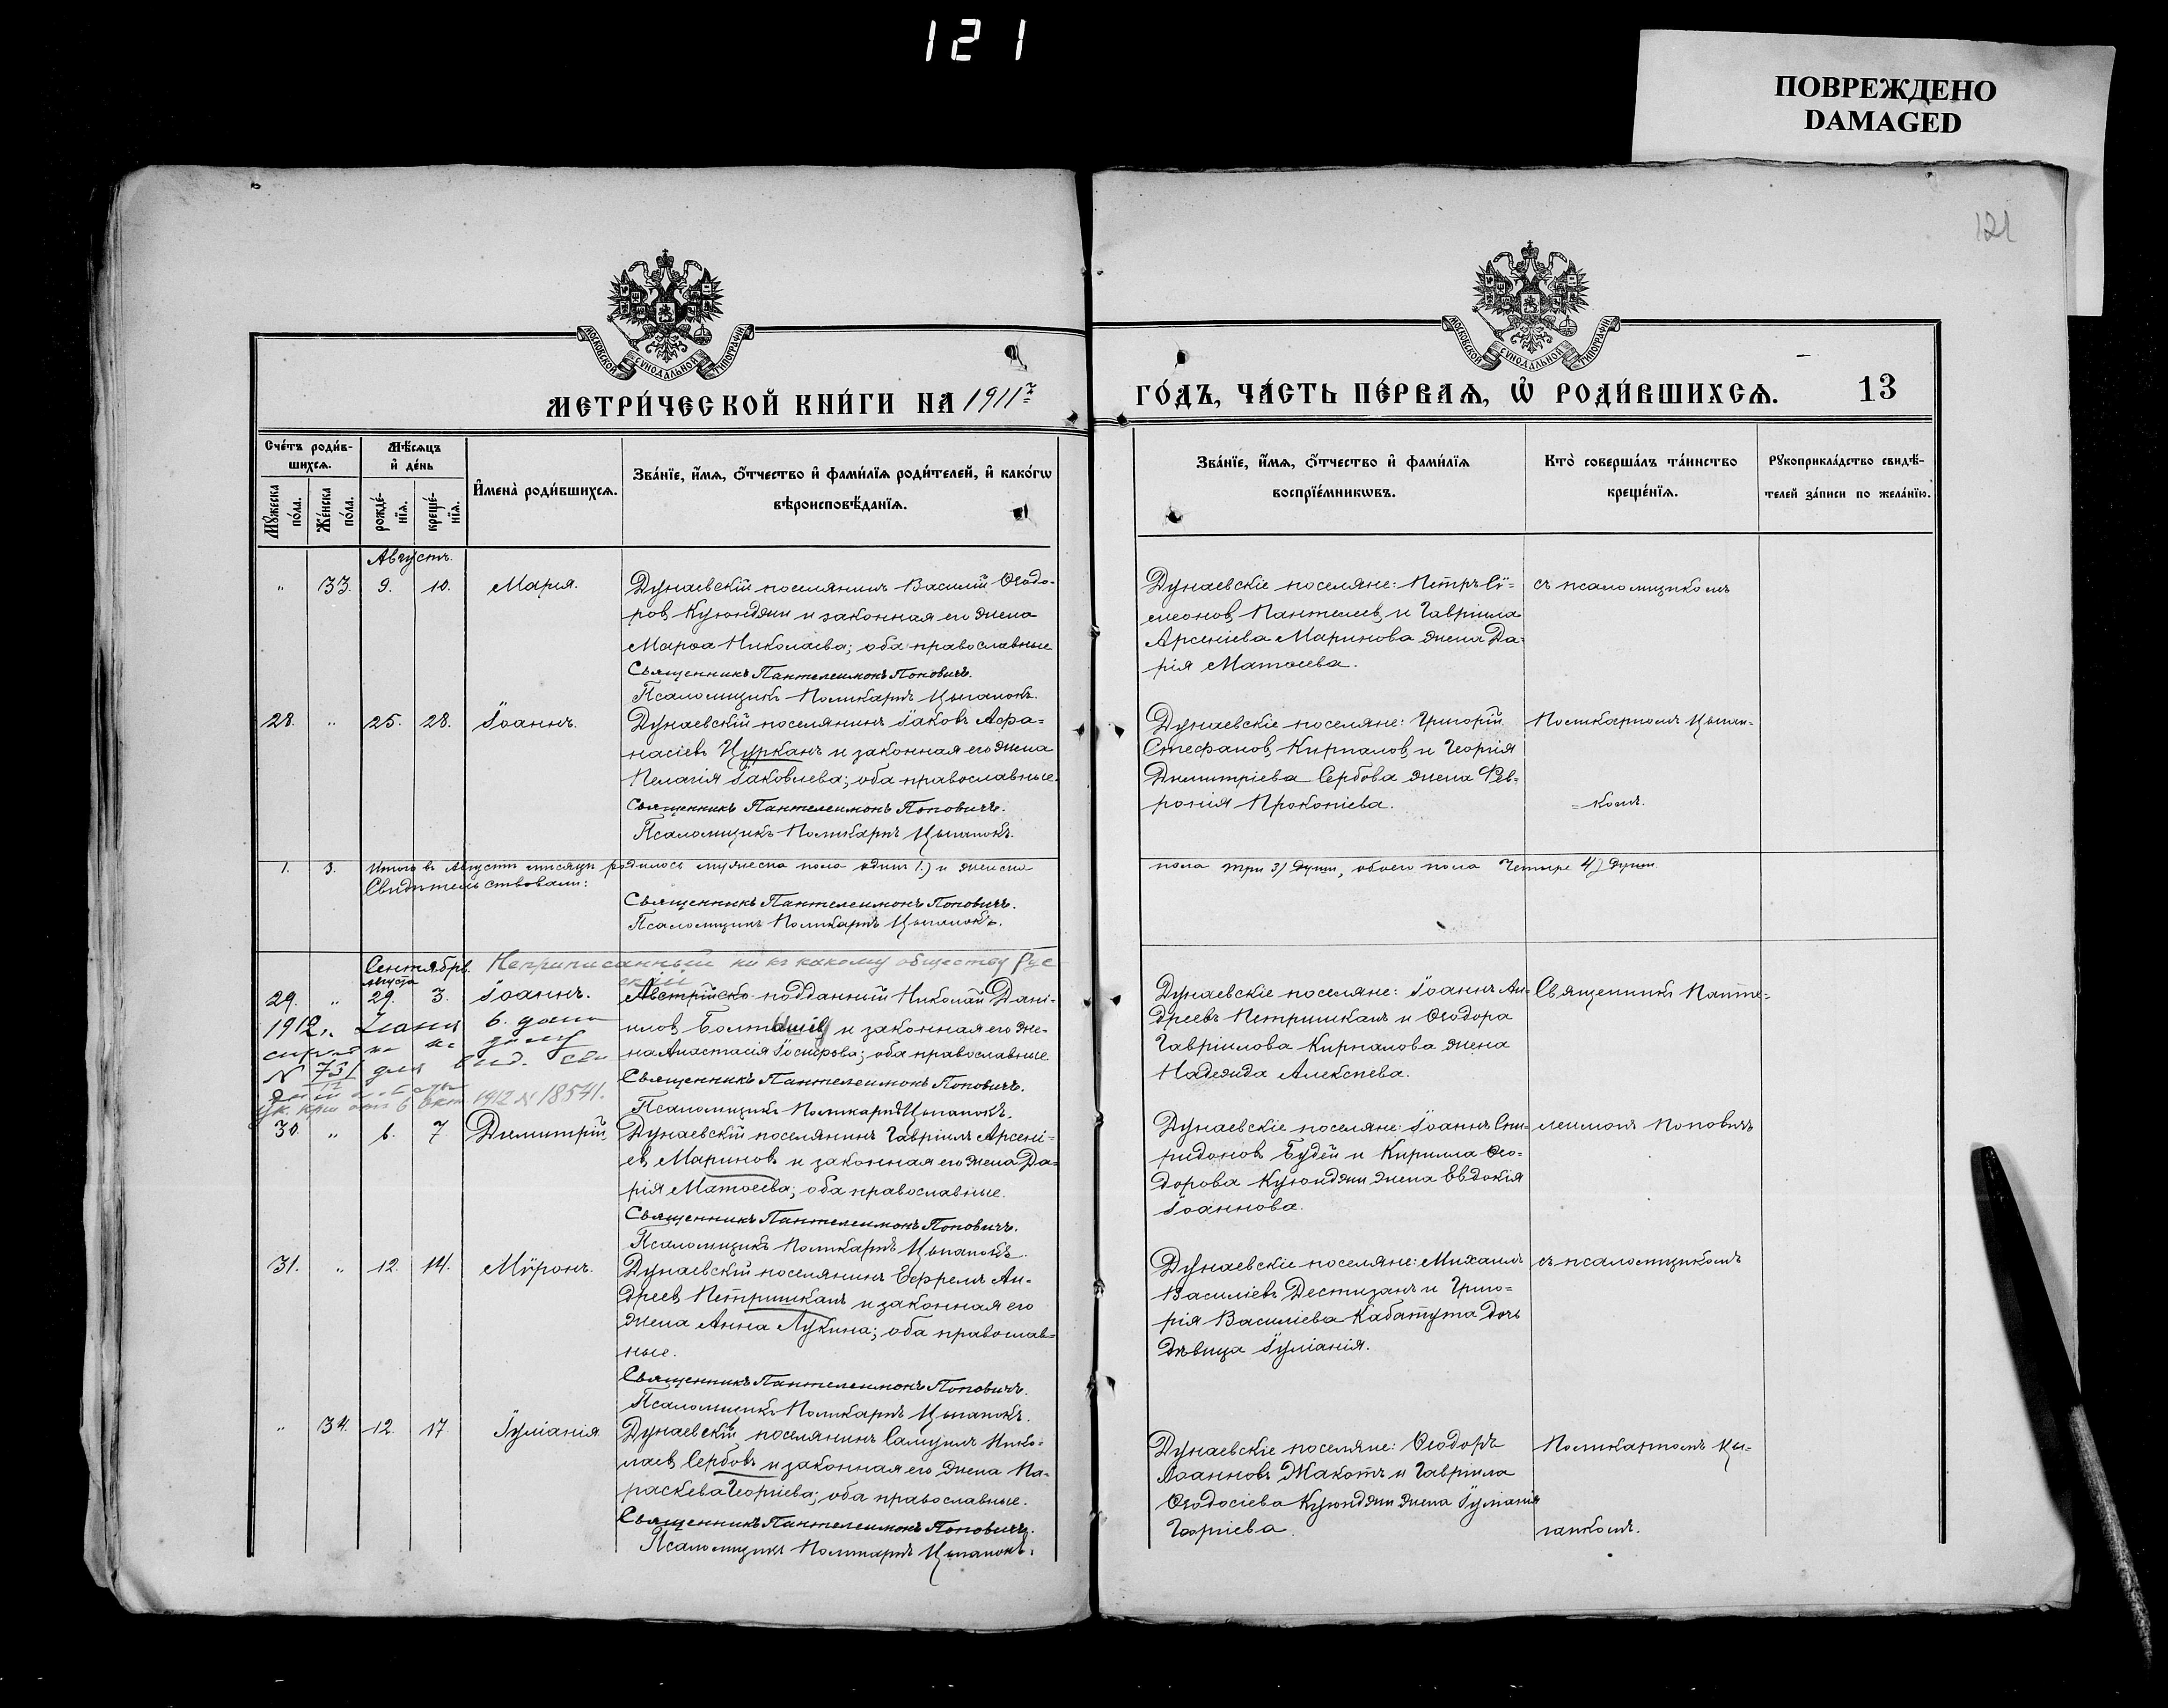 121
ПОВРЕЖДЕНО
DAMAGED
121
МОСКОВСКОЙ СѴНОДАЛЬНОЙ ТИПОГРАФІИ
МОСКОВСКОЙ СѴНОДАЛЬНОЙ ТИПОГРАФІИ
МЕТРИ́ЧЕСКОЙ КНИ́ГИ НА 1911 г.
ГО́ДЪ, ЧА́СТЬ ПЕ́РВАѦ, Ѡ҆ РОДИ́ВШИХСѦ. 13
Сче́тъ роди́в-
шихсѧ.
Мꙋ́жеска
по́ла.
Же́нска
по́ла.
Мѣ́сѧцъ
и҆ де́нь
рожде́-
нїѧ.
креще́-
нїѧ.
И҆мена̀ роди́вшихсѧ.
Зва́нїе, и҆́мѧ, ѻ҆́тчество и҆ фами́лїѧ роди́телей, и҆ како́гѡ
вѣроисповѣ́данїѧ.
Зва́нїе, и҆́мѧ, ѻ҆́тчество и҆ фами́лїѧ
воспрїе́мникѡвъ.
Кто̀ соверша́лъ та́инство
креще́нїѧ.
Рꙋкоприкла́дство свидѣ́-
телей за́писи по жела́нїю.
Августъ.
" 33. 9. 10. Марія.
Дунаевскій поселянинъ Василій Ѳеодо-
ровъ Куюнджи и законная его жена
Марѳа Николаева; оба православные
Священникъ Пантелеимонъ Поповичъ.
Псаломщикъ Поликарпъ Цыганокъ.
Дунаевскіе поселяне: Петръ Сѵ-
меоновъ Пантелеевъ и Гавріила
Арсеніева Маринова жена Да-
рія Матѳеева.
съ псаломщикомъ
28. " 25. 28. Іоаннъ.
Дунаевскій поселянинъ Іаковъ Аѳа-
насіевъ Цурканъ и законная его жена
Пелагія Іаковлева; оба православные.
Священникъ Пантелеимонъ Поповичъ.
Псаломщикъ Поликарпъ Цыганокъ.
Дунаевскіе поселяне: Григорій
Стефановъ Кирпаловъ и Георгія
Димитріева Сербова жена Фев-
ронія Прокопіева.
Поликарпомъ Цыган-
=комъ.
1. 3. Итого въ Августѣ мѣсяцѣ родилось мужеска пола одинъ 1) и женска
пола три 3) души, обоего пола четыре 4) души.
Свидѣтельствовали:
Священникъ Пантелеимонъ Поповичъ.
Псаломщикъ Поликарпъ Цыганокъ.
Сентябрь. Неприписанный ни къ какому обществу Рус
скій
августа
29. " 29. 3. Іоаннъ.
Австрійско-подданный Николай Дані-
иловъ и законная его же-
на Анастасія Іосифова; оба православные
Священникъ Пантелеимонъ Поповичъ.
Псаломщикъ Поликарпъ Цыганокъ.
1912 г. 6. дана
№ 731 для
6 Окт 1912 № 18571.
Дунаевскіе поселяне: Іоаннъ Ан-
дреевъ Петришканъ и Ѳеодора
Гавріилова Кирпалова жена
Надежда Алексѣева.
Священникъ Панте-
30 " 6. 7 Димитрій.
Дунаевскій поселянинъ Гавріилъ Арсені-
евъ Мариновъ и законная его жена Да-
рія Матѳеева; оба православные.
Священникъ Пантелеимонъ Поповичъ.
Псаломщикъ Поликарпъ Цыганокъ.
Дунаевскіе поселяне: Іоаннъ Спи-
ридоновъ Будей и Кирилла Ѳео-
дорова Куюнджи жена Евдокія
Іоаннова.
леимонъ Поповичъ
31. " 12. 14. Мѵронъ.
Дунаевскій поселянинъ Ефремъ Ан-
дреевъ Петришканъ и законная его
жена Анна Лукина; оба православ-
ные.
Священникъ Пантелеимонъ Поповичъ.
Псаломщикъ Поликарпъ Цыганокъ.
Дунаевскіе поселяне: Михаилъ
Василіевъ Дестизанъ и Григо-
рія Василіева Кабатута дочь
дѣвица Іуліанія.
съ псаломщикомъ
" 34. 12. 17. Іуліанія
Дунаевскій поселянинъ Самуилъ Нико-
лаевъ Сербовъ и законная его жена Па-
раскева Георгіева; оба православные.
Священникъ Пантелеимонъ Поповичъ.
Псаломщикъ Поликарпъ Цыганокъ.
Дунаевскіе поселяне: Ѳеодоръ
Іоанновъ Жакотъ и Гавріила
Ѳеодосіева Куюнджи жена Іуліанія
Георгіева.
Поликарпомъ Цы-
ганкомъ.